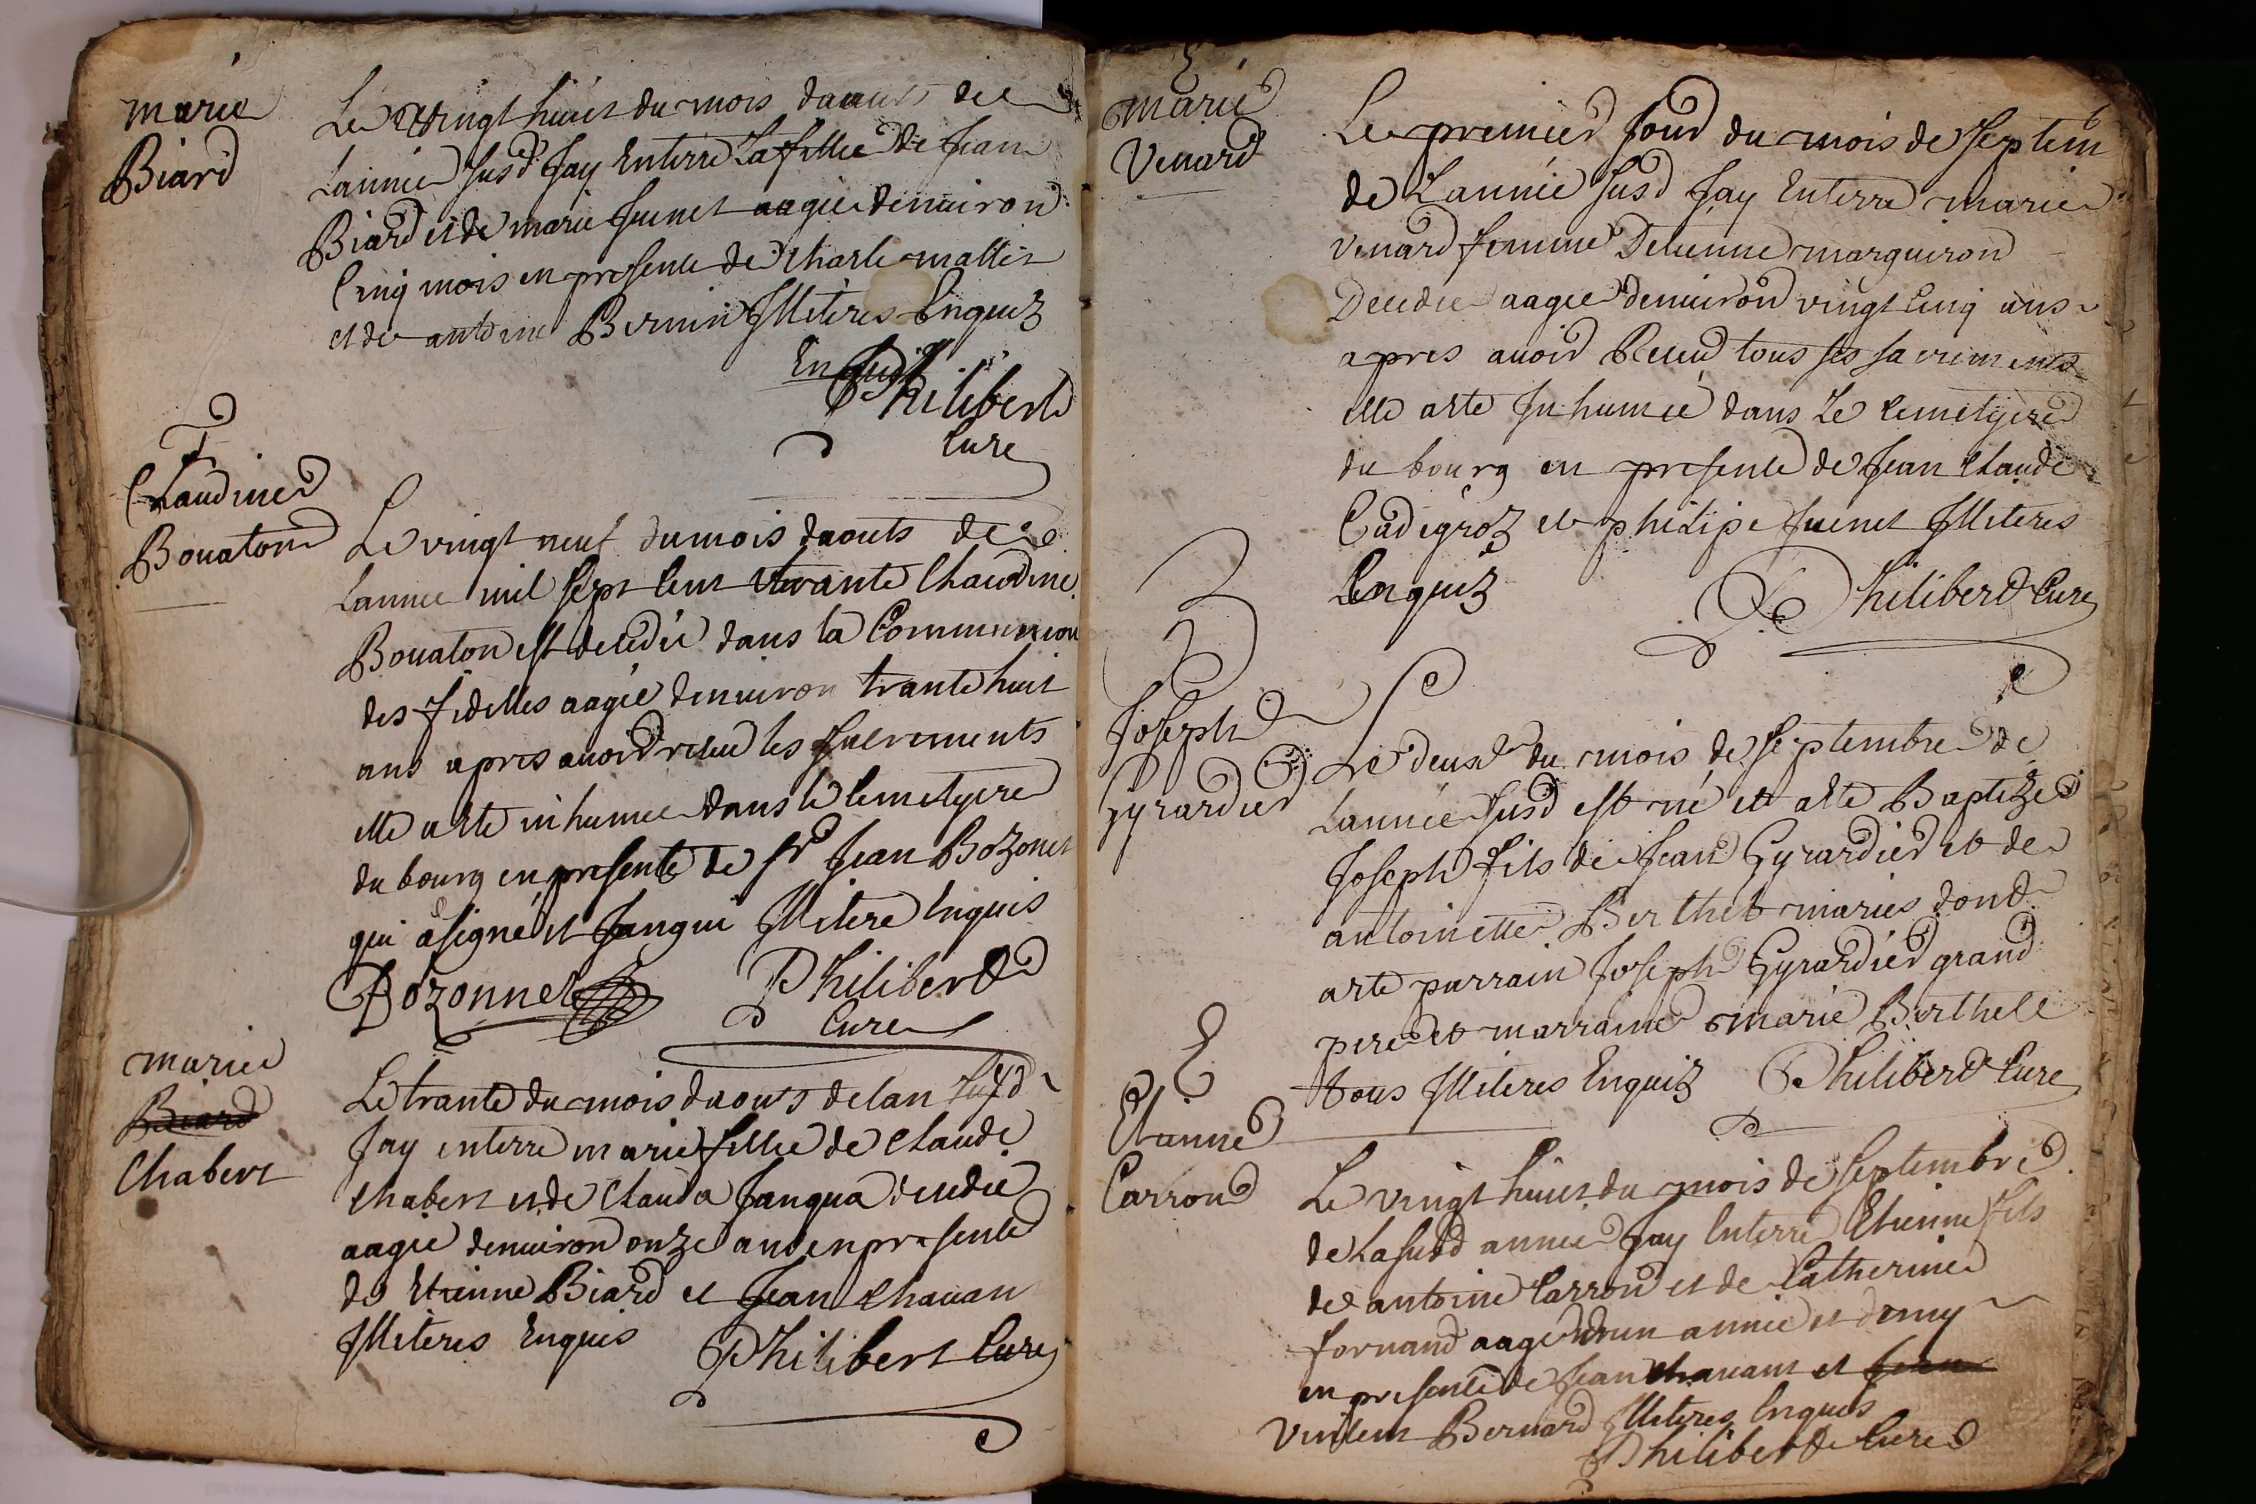 marie
Biard
Le vingt huict du mois daouts de
Lannée susd Jay Enterré La fillie de Jean
Biard et de marie Juenet aagée denuiron
Cinq mois en presente de Charle mallet
et de antoine Bernin Illiteres Enquiz
Philibert
Cure
Claudine
Bouaton
Le vingt neuf du mois daouts de
Lannee mil sept cent Claudine
Bouaton est decedée dans la Communion
des fidelles aagée denuiron trante huit
ans apres auoir receu les sacrements
elle aste inhumee dans le cemetyere
du bourg en presente de sr Jean Bozonet
qui a signé et Janqui Illitere Enquis
Bozonnet
Philibert
Cure
marie
Biard
Chabert
Le trante du mois daouts de lan susd
Jay enterre marie fillie de Claude
Chabert et de Clauda Janqua decedée
aagée denuiron onze ans en presente
de Etienne Biard et Jean Chauan
Illiteres Enquis
Philibert Cure
marie
Venard
Le premier Jour du mois de Septem
de Lannée susd Jay Enterré marie
Venard femme Detienne marguiron
Decedée aagée denuiron vingt cinq ans
apres auoir Receu tous ses sacrements
elle aste Inhumée dans Le cemetyere
du bourg en presente de Jean Claude
Cadigroz et philipe Juenet Illiteres
Enquiz
Philiberd Cure
Joseph
Gyrardier
Le deux du mois de Septembre de
Lannée susd est né et aste Baptizé
Joseph fils de Jean Gyrardier et de
antoinette Berthet mariés dont
aste parrain Joseph Gyrardier grand
pere et marraine marie Berthet
tous Illiteres Enquiz
Philiberd Cure
Etienne
Carron
Le vingt huict du mois de Septembre
de La susd année Jay Enterré Etienne fils
de antoine Carron et de Catherine
fornand aagé dun annee et demy
en presente de Jean Chauant et Jean
Vincent Bernard Illiteres Enquis
Philiberd Cure